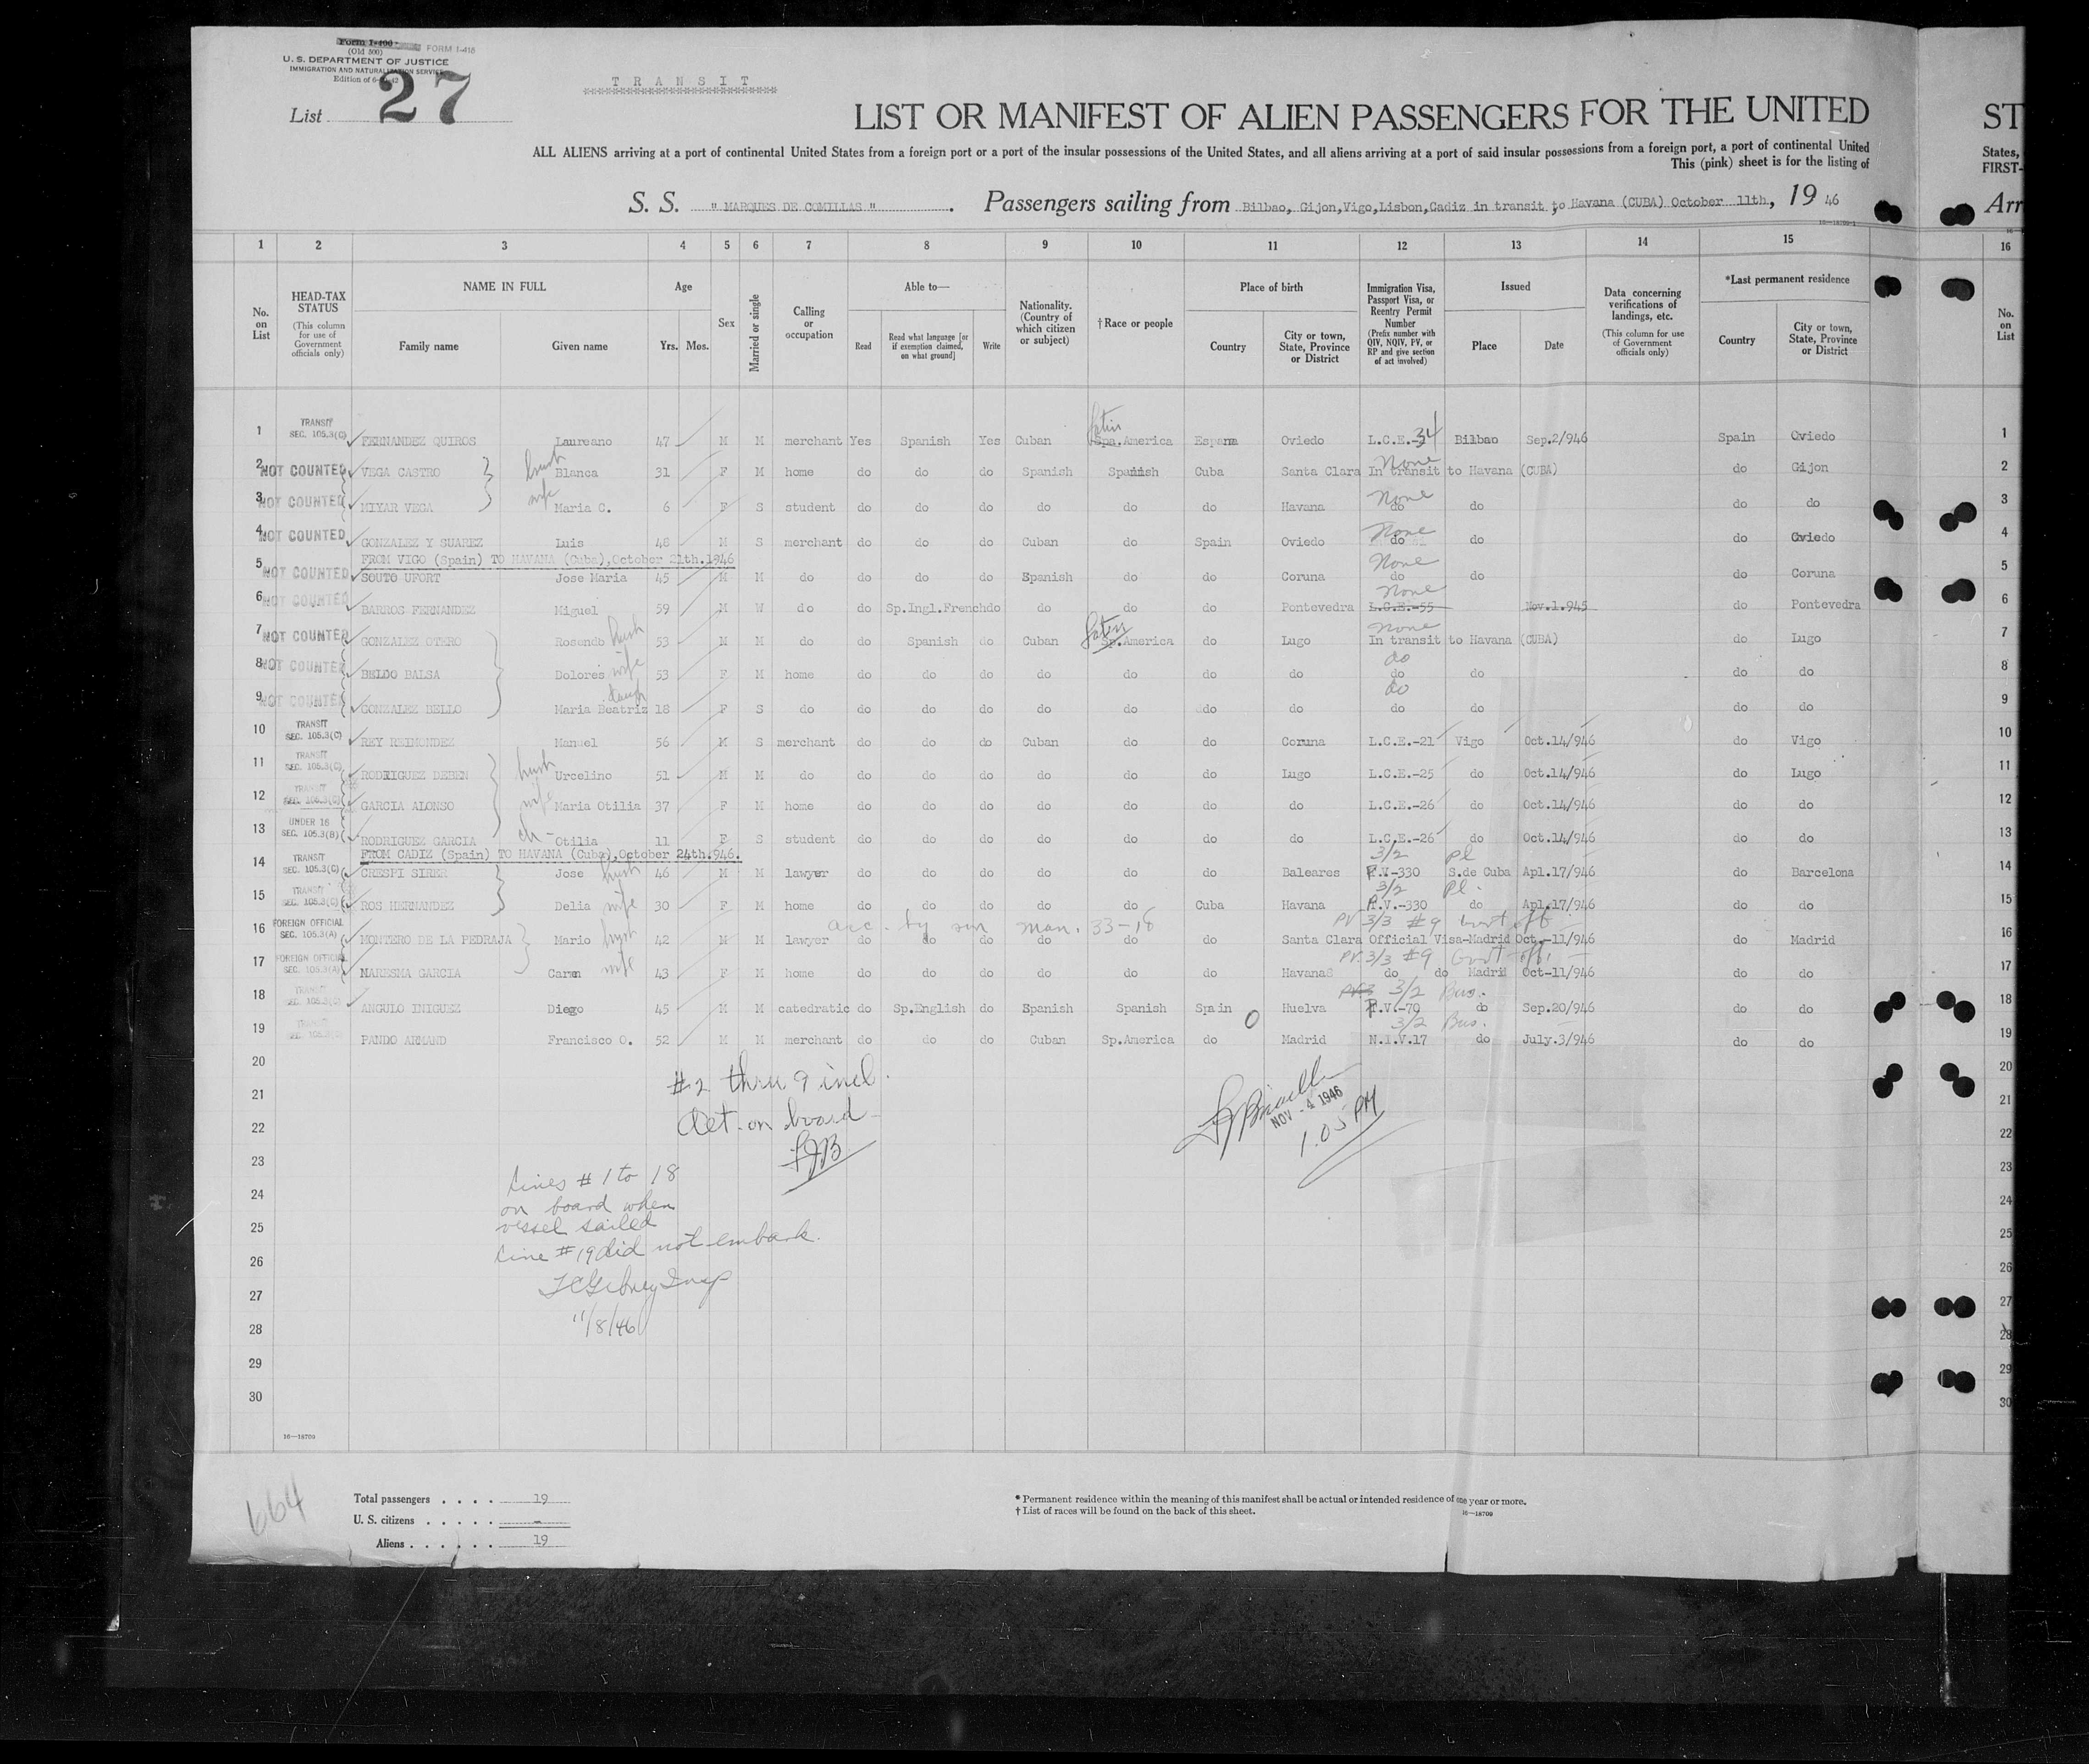 Form I-400 FORM I-418
(Old 500)
U. S. DEPARTMENT OF JUSTICE
IMMIGRATION AND NATURALIZATION SERVICE
Edition of
List 27
TRANSIT
LIST OR MANIFEST OF ALIEN PASSENGERS FOR THE UNITED ST
ALL ALIENS arriving at a port of continental United States from a foreign port or a port of the insular possessions of the United States, and all aliens arriving at a port of said insular possessions from a foreign port, a port of continental United States,
This (pink) sheet is for the listing of FIRST-
S. S. "MARQUES DE COMILLAS". Passengers sailing from Bilbao, Gijon,Vigo,Lisbon,Cadiz in transit to Havana (CUBA) October 11th, 19 46 Arr
1 2 3 4 5 6 7 8 9 10 11 12 13 14 15 16
No. on List
HEAD-TAX STATUS (This column for use of Government officials only)
NAME IN FULL Family name Given name
Age Yrs. Mos.
Sex
Married or single
Calling or occupation
Able to— Read Read what language [or if exemption claimed, on what ground] Write
Nationality. (Country of which citizen or subject)
†Race or people
Place of birth Country City or town, State, Province or District
Immigration Visa, Passport Visa, or Reentry Permit Number (Prefix number with QIV, NQIV, PV, or RP and give section of act involved)
Issued Place Date
Data concerning verifications of landings, etc. (This column for use of Government officials only)
*Last permanent residence Country City or town, State, Province or District
No. on List
1 TRANSIT SEC. 105.3(C) FERNANDEZ QUIROS Laureano 47 M M merchant Yes Spanish Yes Cuban Latin Spa.America Espana Oviedo L.C.E.-34 Bilbao Sep.2/946 Spain Oviedo 1
2 NOT COUNTED VEGA CASTRO hush Blanca 31 F M home do do do Spanish Spanish Cuba Santa Clara None In transit to Havana (CUBA) do Gijon 2
3 NOT COUNTED MIYAR VEGA wife Maria C. 6 F S student do do do do do do Havana None do do do do 3
4 NOT COUNTED GONZALEZ Y SUAREZ Luis 48 M S merchant do do do Cuban do Spain Oviedo None do do do Oviedo 4
FROM VIGO (Spain) TO HAVANA (Cuba),October 21th.1946
5 NOT COUNTED SOUTO UFORT Jose Maria 45 M M do do do do Spanish do do Coruna None do do do Coruna 5
6 NOT COUNTED BARROS FERNANDEZ Miguel 59 M W do do Sp.Ingl.French do do do do Pontevedra None L.C.E.-55 Nov.1.945 do Pontevedra 6
7 NOT COUNTED GONZALEZ OTERO Rosendo hush 53 M M do do Spanish do Cuban Latin Sp.America do Lugo None In transit to Havana (CUBA) do Lugo 7
8 NOT COUNTED BELDO BALSA Dolores wife 53 F M home do do do do do do do do do do do do 8
9 NOT COUNTED GONZALEZ BELLO Maria Beatriz daugh 18 F S do do do do do do do do do do do do do 9
10 TRANSIT SEC. 105.3(C) REY REIMONDEZ Manuel 56 M S merchant do do do Cuban do do Coruna L.C.E.-21 Vigo Oct.14/946 do Vigo 10
11 TRANSIT SEC. 105.3(C) RODRIGUEZ DEBEN hush Urcelino 51 M M do do do do do do do Lugo L.C.E.-25 do Oct.14/946 do Lugo 11
12 TRANSIT SEC. 105.3(C) GARCIA ALONSO wife Maria Otilia 37 F M home do do do do do do do L.C.E.-26 do Oct.14/946 do do 12
13 UNDER 16 SEC. 105.3(B) RODRIGUEZ GARCIA ch- Otilia 11 F S student do do do do do do do L.C.E.-26 do Oct.14/946 do do 13
FROM CADIZ (Spain) TO HAVANA (Cuba),October 24th.946.
14 TRANSIT SEC. 105.3(C) CRESPI SIRER Jose hush 46 M M lawyer do do do do do do Baleares 3/2 pl P.V-330 S.de Cuba Apl.17/946 do Barcelona 14
15 TRANSIT SEC. 105.3(C) ROS HERNANDEZ Delia wife 30 F M home do do do do do Cuba Havana 3/2 Pl. P.V.-330 do Apl.17/946 do do 15
16 FOREIGN OFFICIAL SEC. 105.3(A) MONTERO DE LA PEDRAJA Mario hush 42 M M lawyer do do do do do do Santa Clara PV 3/3 #9 Govt off Official Visa-Madrid Oct.-11/946 do Madrid 16
man. 33-18
17 FOREIGN OFFICIAL SEC. 105.3(A) MARESMA GARCIA Carmen wife 43 F M home do do do do do do Havana PV 3/3 #9 Govt off. do do Madrid Oct-11/946 do do 17
18 TRANSIT SEC. 105.3(C) ANGULO INIGUEZ Diego 45 M M catedratic do Sp.English do Spanish Spanish Spain Huelva 3/2 Bus. P.V.-70 do Sep.20/946 do do 18
19 TRANSIT SEC. 105.3(C) PANDO ARMAND Francisco O. 52 M M merchant do do do Cuban Sp.America do O Madrid 3/2 Bus. N.I.V.17 do July.3/946 do do 19
20 20
21 #2 thru 9 incl. 21
22 Det. on board 22
FJB
NOV - 4 1946
1.05 PM
23 23
24 Lines #1 to 18 24
on board when
25 vessel sailed 25
26 Line #19 did not embark. 26
27 27
28 11/8/46 28
29 29
30 30
16—18709
664
Total passengers . . . . 19
U. S. citizens . . . . . -
Aliens . . . . . . 19
* Permanent residence within the meaning of this manifest shall be actual or intended residence of one year or more.
† List of races will be found on the back of this sheet.
16—18709